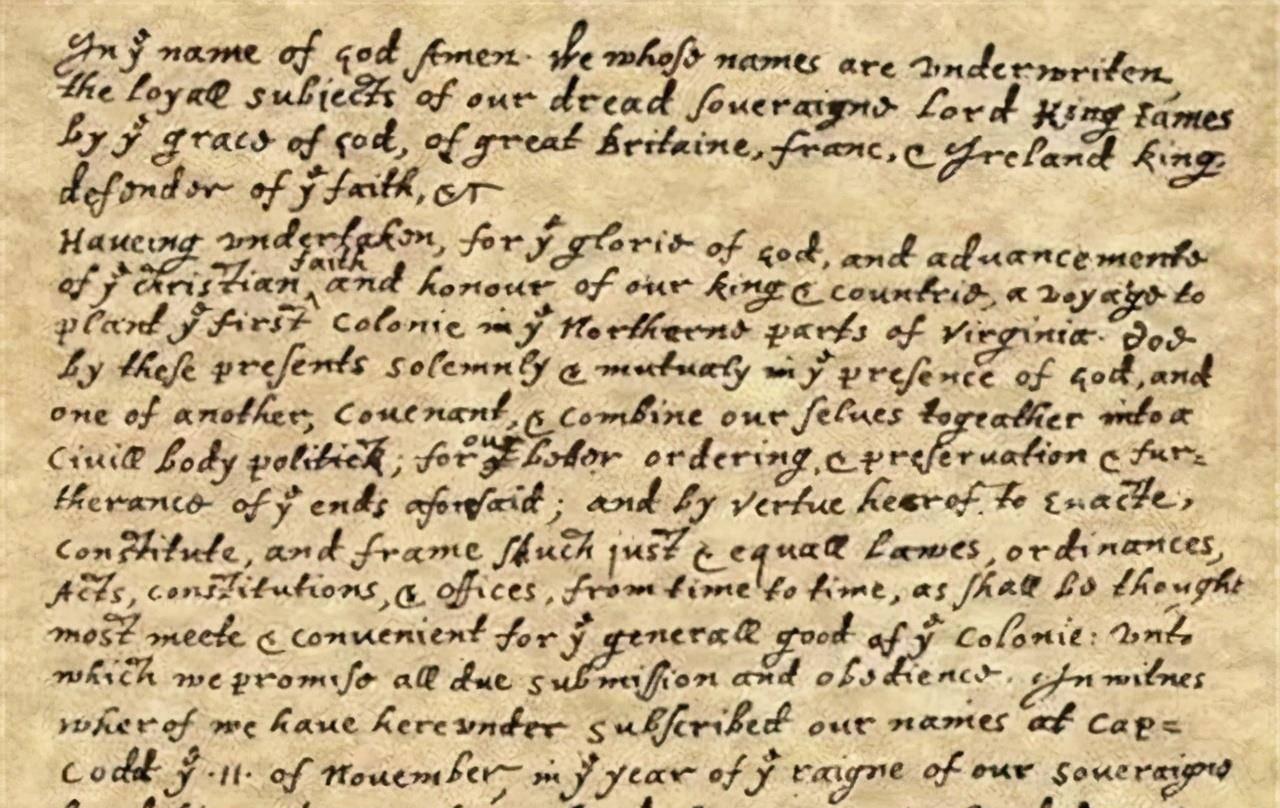 In yͤ name of god Amen. We whose names are vnderwriten,
the loyall subjects of our dread soueraigne Lord King Iames
by yͤ grace of god, of great Britaine, franc, & Ireland king,
defender of yͤ faith, &c
Haueing vndertaken, for yͤ glorie of god, and aduancemente
of yͤ christian ^faith and honour of our king & countrie, a voyage to
plant yͤ first colonie in yͤ Northerne parts of Virginia. doe
by these presents solemnly & mutualy in yͤ presence of god, and
one of another, couenant, & combine our selues togeather into a
ciuill body politick; for our yͤ better ordering, & preseruation & fur=
therance of yͤ ends aforesaid; and by vertue hearof to enacte,
constitute, and frame shuch just & equall lawes, ordinances,
Acts, constitutions, & offices, from time to time, as shall be thought
most meete & conuenient for yͤ generall good of yͤ colonie: vnto
which we promise all due submission and obedience. In witnes
wherof we haue herevnder subscribed our names at Cap=
Codd yͤ .11. of Nouember, in yͤ year of yͤ raigne of our soueraigne